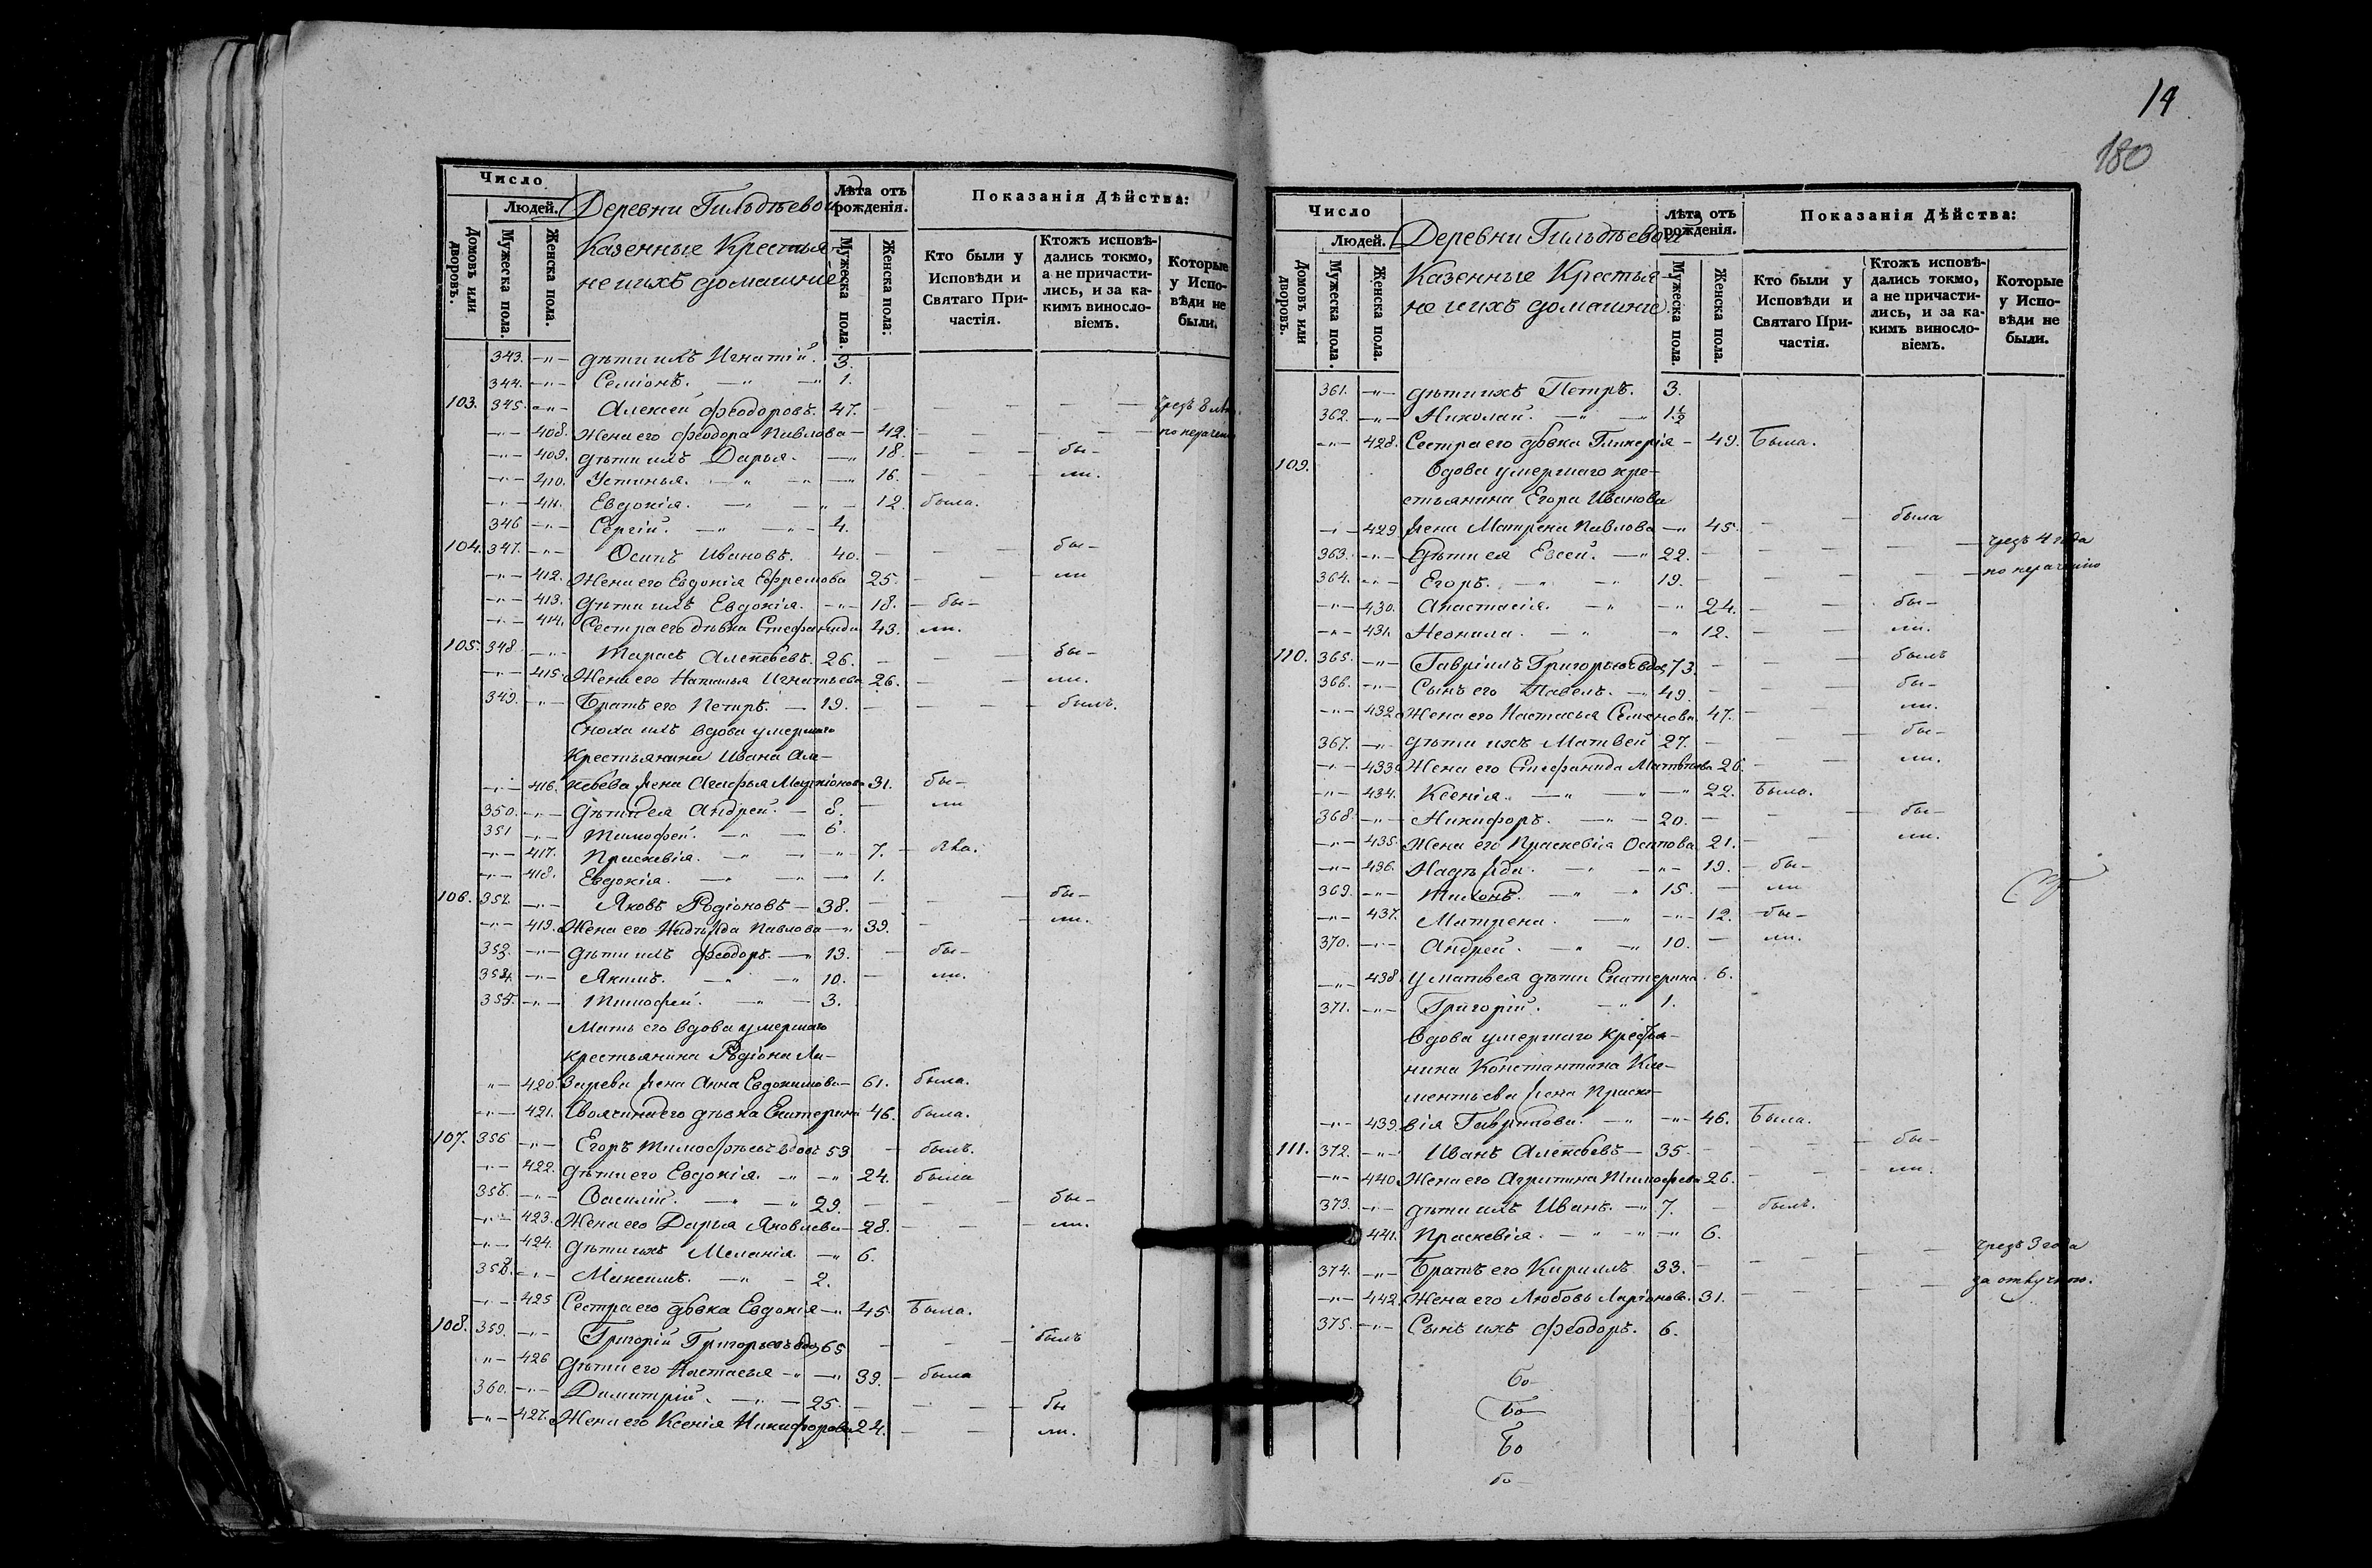 Число
Людей.
Домовъ или дворовъ.
Мужеска пола.
Женска пола.
Деревни Гильдѣевой
Казенные Крестья-
не и ихъ домашніе
Лѣта отъ рожденія.
Мужеска пола.
Женска пола.
Показанія Дѣйства:
Кто были у Исповѣди и Святаго При-частія.
Ктожъ исповѣ-дались токмо, а не причасти-лись, и за ка-кимъ винословіемъ.
Которые у Испо-вѣди не были.
343. -"- дѣти ихъ Игнатій. 3.
344. -"- Семіонъ. -"- 1.
103. 345. -"- Алексей Феодоровъ. 47. - - - - чрезъ 8 лѣт.
-"- 408. Жена его Феодора Павлова - 42. - - - по нерачен
-"- 409. дѣти ихъ Дарья. -"- 18. - - бы-
-"- 410. Устинья. -"- 16. - - ли.
-"- 411. Евдокія. -"- 12. была.
346 -"- Сергій. -"- 4.
104. 347. -"- Осипъ Ивановъ. 40. - - бы-
-"- 412. Жена его Евдокія Ефремова 25. - - ли
-"- 413. дѣти ихъ Евдокія. -"- 18. - бы-
-"- 414. Сестра его дѣвка Стефанида 43. ли.
105. 348. -"- Тарасъ Алексѣевъ. 26. - - бы-
-"- 415. Жена его Наталья Игнатьева 26. - - ли.
349. -"- Братъ его Петръ. - 19. - - - былъ.
Сноха ихъ вдова умершаго
Крестьянина Ивана Але-
-"- 416. ксѣева жена Агафья 31. бы-
350. -"- дѣти ея Андрей. - 8. - ли
351 -"- Тимофей. -"- 6.
-"- 417. Праскевія. -"- 7. -
-"- 418. Евдокія. -"- 1.
106. 352. -"- Яковъ Родіоновъ - 38. - - бы-
-"- 419. Жена его Надѣжда Павлова -"- 39. - - ли.
353. -"- дѣти ихъ Феодоръ. -"- 13. - бы-
354. -"- Якимъ. -"- 10. - ли.
355. -"- Тимофей. -"- 3.
Мать его вдова умершаго
крестьянина Родіона Ла-
"- 420. зарева жена Анна Евдокимова - 61. была.
-"- 421. Своячина его дѣвка Екатерина 46. была.
107. 356 -"- Егоръ Тимофѣевъ вдовъ 53 - былъ.
-"- 422. дѣти его Евдокія. -"- 24. была
356. -"- Василій. -"- 29. - - бы-
-"- 423. Жена его Дарья Яковлева - 28. - - ли.
-"- 424. дѣти ихъ Меланія -"- 6.
358. -"- Максимъ. -"- 2.
-"- 425 Сестра его дѣвка Евдокія -"- 45 Была.
108. 359. -"- Григорій Григорьевъ вдов. 65 - - былъ
"- 426 дѣти его Настасья -"- 39. - была
360. -"- Димитрій. -"- 25. - - бы
-"- 427. Жена его Ксенія Никифорова 24. - - ли.
14
180
Число
Людей.
Домовъ или дворовъ.
Мужеска пола.
Женска пола.
Деревни Гильдѣевой
Казенные Крестья-
не и ихъ домашніе.
Лѣта отъ рожденія.
Мужеска пола.
Женска пола.
Показанія Дѣйства:
Кто были у Исповѣди и Святаго При-частія.
Ктожъ исповѣ-дались токмо, а не причасти-лись, и за ка-кимъ винословіемъ.
Которые у Испо-вѣди не были.
361. -"- дѣти ихъ Петръ. 3.
362. -"- Николай. -"- 1½
-"- 428. Сестра его дѣвка Гликерія - 49. Была.
109. Вдова умершаго кре-
стьянина Егора Иванова
-"- 429 жена Матрена Павлова -"- 45. - - была
363. -"- Дѣти ея Евсей. -"- 22. - - - чрезъ 4 года
364. -"- Егоръ. -"- 19. - - - по нераченію
-"- 430. Анастасія. -"- 24. - - бы-
-"- 431. Неонила. -"- 12. - - ли.
110. 365. -"- Гавріилъ Григорьевъ вдов. 73. - - былъ
366. -"- Сынъ его Павелъ. -"- 49. - - бы-
-"- 432. Жена его Настасья Семенова. 47. - - ли.
367. -"- дѣти ихъ Матвей 27. - - бы-
-"- 433. Жена его Стефанида Матвѣева 26. - - ли.
-"- 434. Ксенія. -"- 22. Была.
368. -"- Никифоръ. -"- 20. - - бы-
-"- 435. Жена его Праскевія Осипова. 21. - - ли.
-"- 436. Надѣжда. -"- 19. - бы-
369. -"- -"- 15. - ли
-"- 437. Матрена. -"- 12. бы-
370. -"- Андрей. -"- 10. - ли.
-"- 438. У Матвея дѣти Екатерина. 6.
371. -"- Григорій. -"- 1.
Вдова умершаго крестья-
нина Константина Кле-
ментьева жена Праске-
-"- 439. вія Гаврилова. -"- 46. Была.
111. 372. -"- Иванъ Алексѣевъ - 35. - - бы-
-"- 440. Жена его Агрипина Тимофева 26. - - ли.
373. -"- дѣти ихъ Иванъ. -"- 7. - былъ.
441. Праскевія. -"- 6.
374. -"- Братъ его Кириллъ 33. - - - чрезъ 3 года
-"- 442. Жена его Любовь Ларіонов. 31. - - - за отлучкою.
375. -"- Сынъ ихъ Феодоръ. 6.